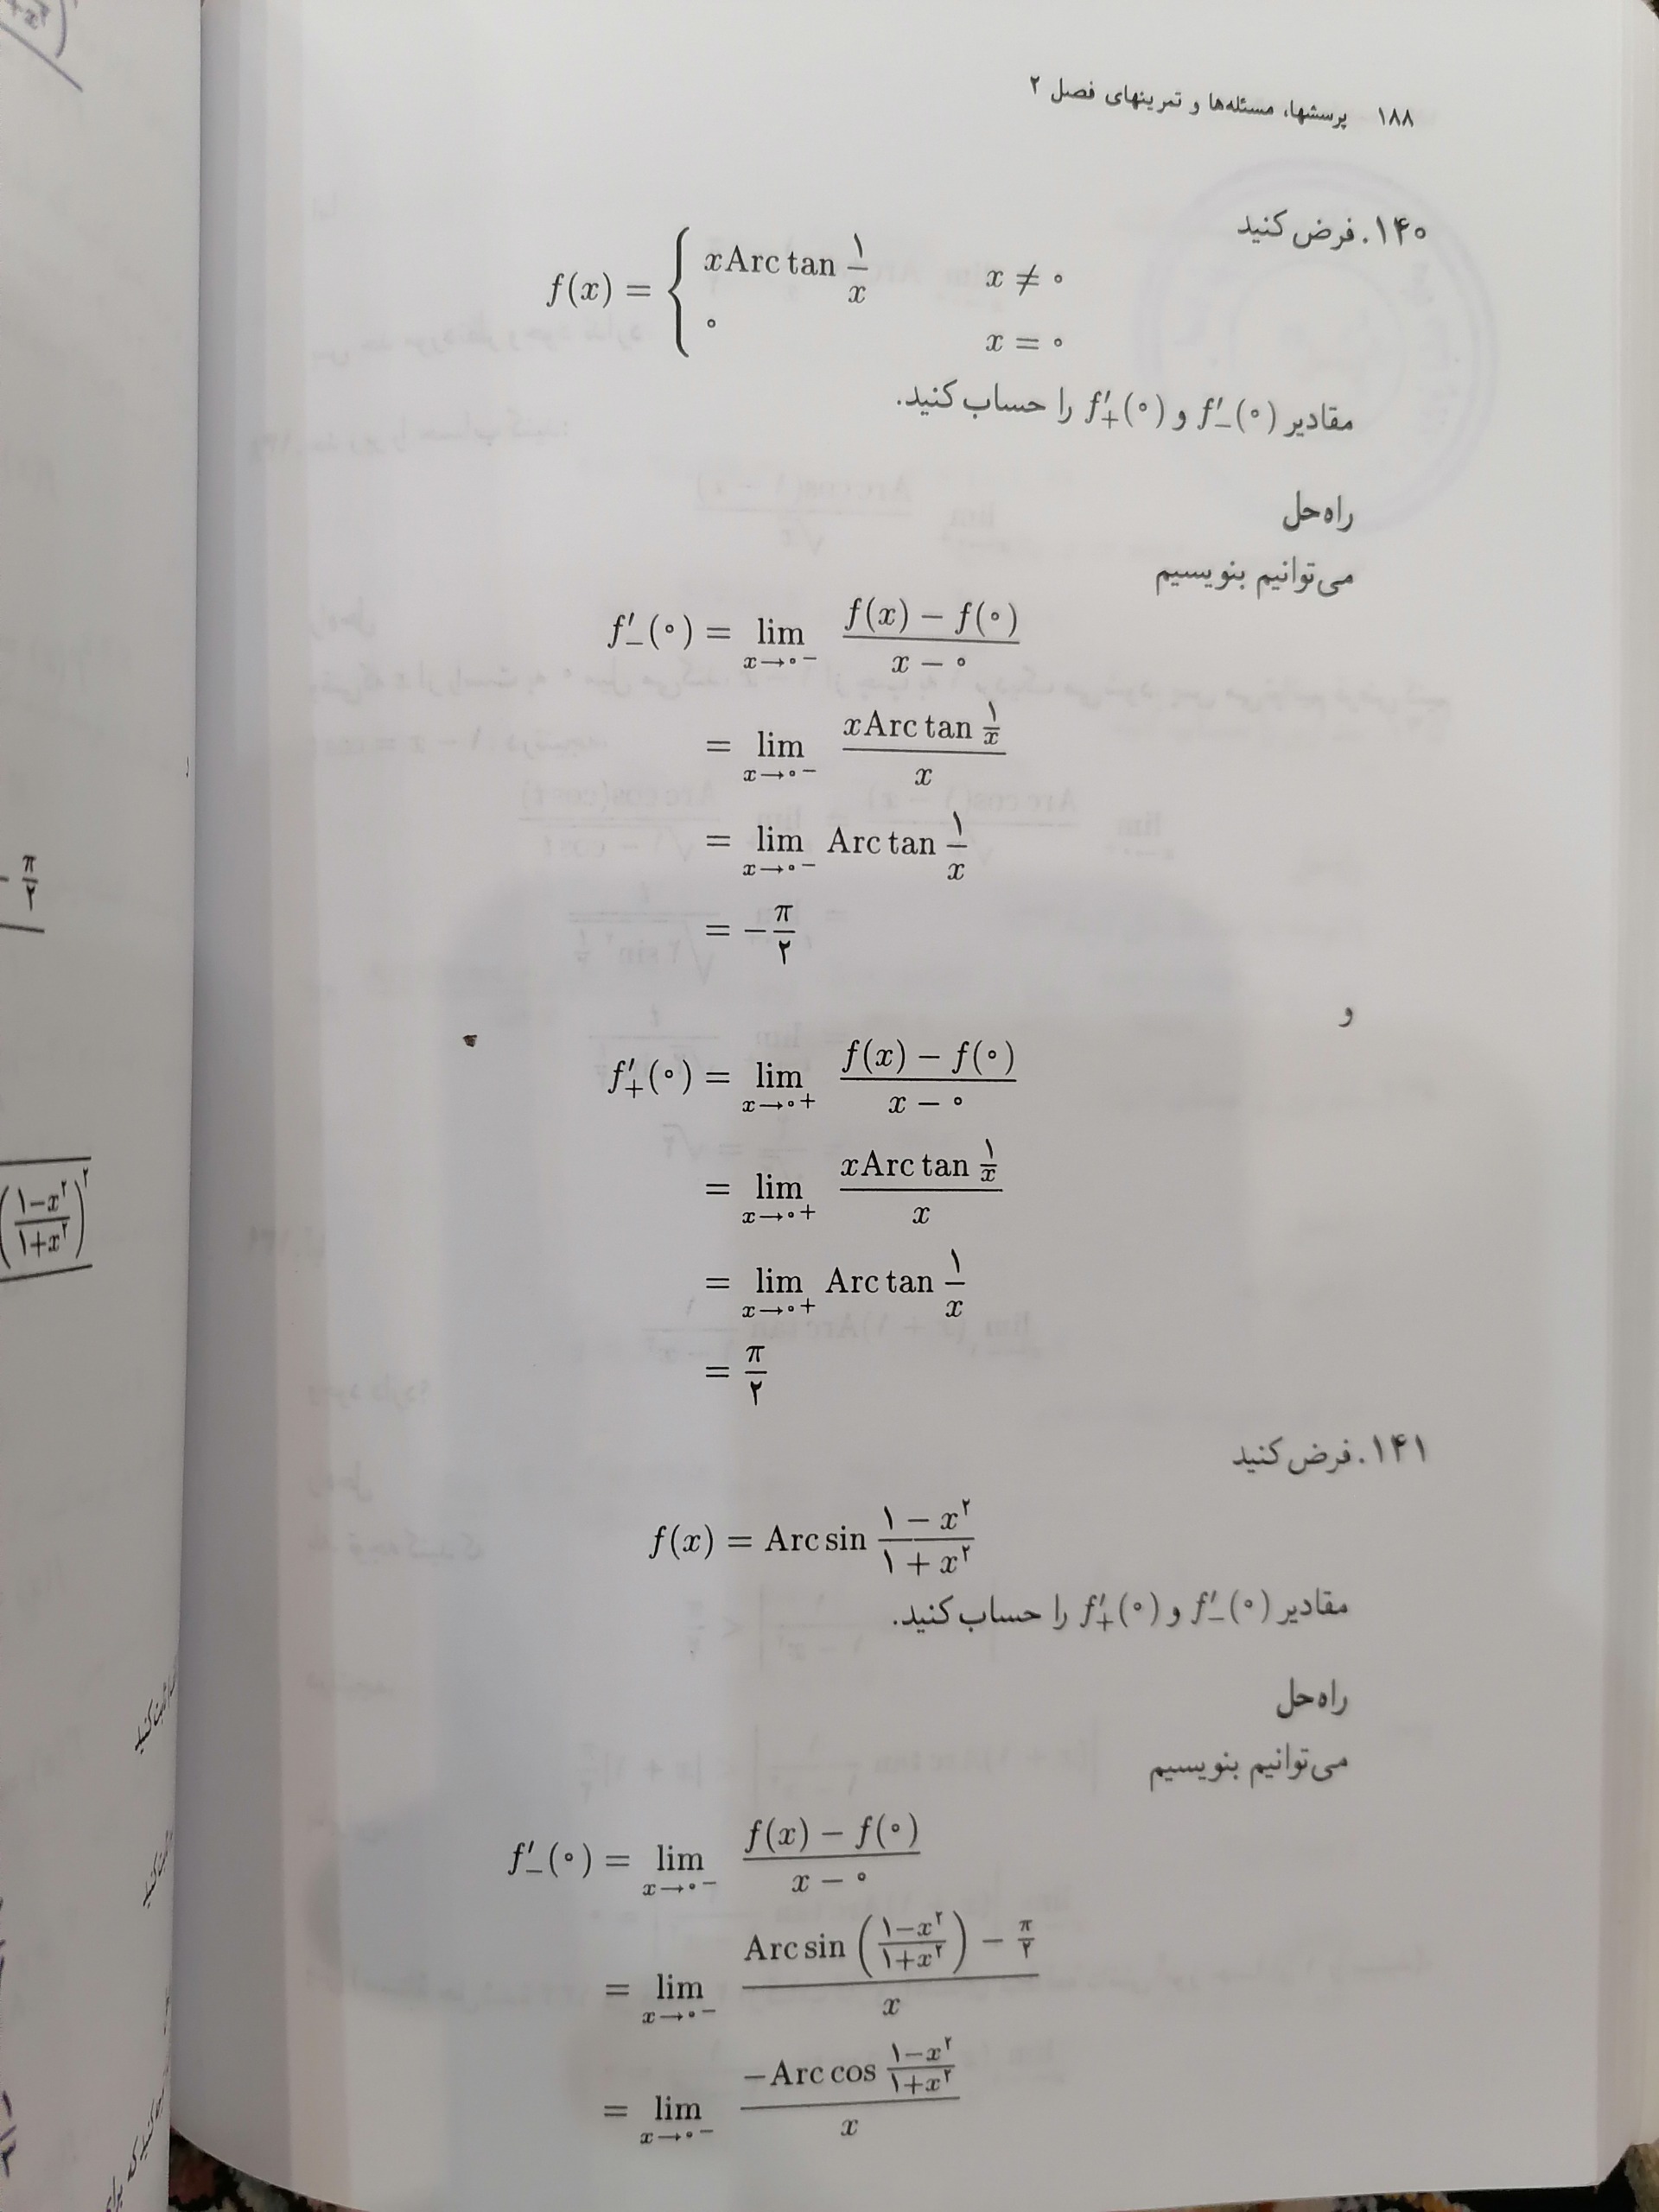 ۱۸۸ پرسشها، مسئله‌ها و تمرینهای فصل ۲
۱۴۰. فرض کنید
f(x) = { x Arc tan ۱/x    x ≠ ۰
۰    x = ۰
مقادیر f′₋(۰) و f′₊(۰) را حساب کنید.
راه‌حل
می‌توانیم بنویسیم
f′₋(۰) = lim x→۰⁻ (f(x) − f(۰))/(x − ۰)
= lim x→۰⁻ (x Arc tan ۱/x)/x
= lim x→۰⁻ Arc tan ۱/x
= −π/۲
و
f′₊(۰) = lim x→۰⁺ (f(x) − f(۰))/(x − ۰)
= lim x→۰⁺ (x Arc tan ۱/x)/x
= lim x→۰⁺ Arc tan ۱/x
= π/۲
۱۴۱. فرض کنید
f(x) = Arc sin (۱ − x²)/(۱ + x²)
مقادیر f′₋(۰) و f′₊(۰) را حساب کنید.
راه‌حل
می‌توانیم بنویسیم
f′₋(۰) = lim x→۰⁻ (f(x) − f(۰))/(x − ۰)
= lim x→۰⁻ (Arc sin ((۱−x²)/(۱+x²)) − π/۲)/x
= lim x→۰⁻ (−Arc cos (۱−x²)/(۱+x²))/x
− π/۲
((۱−x²)/(۱+x²))²